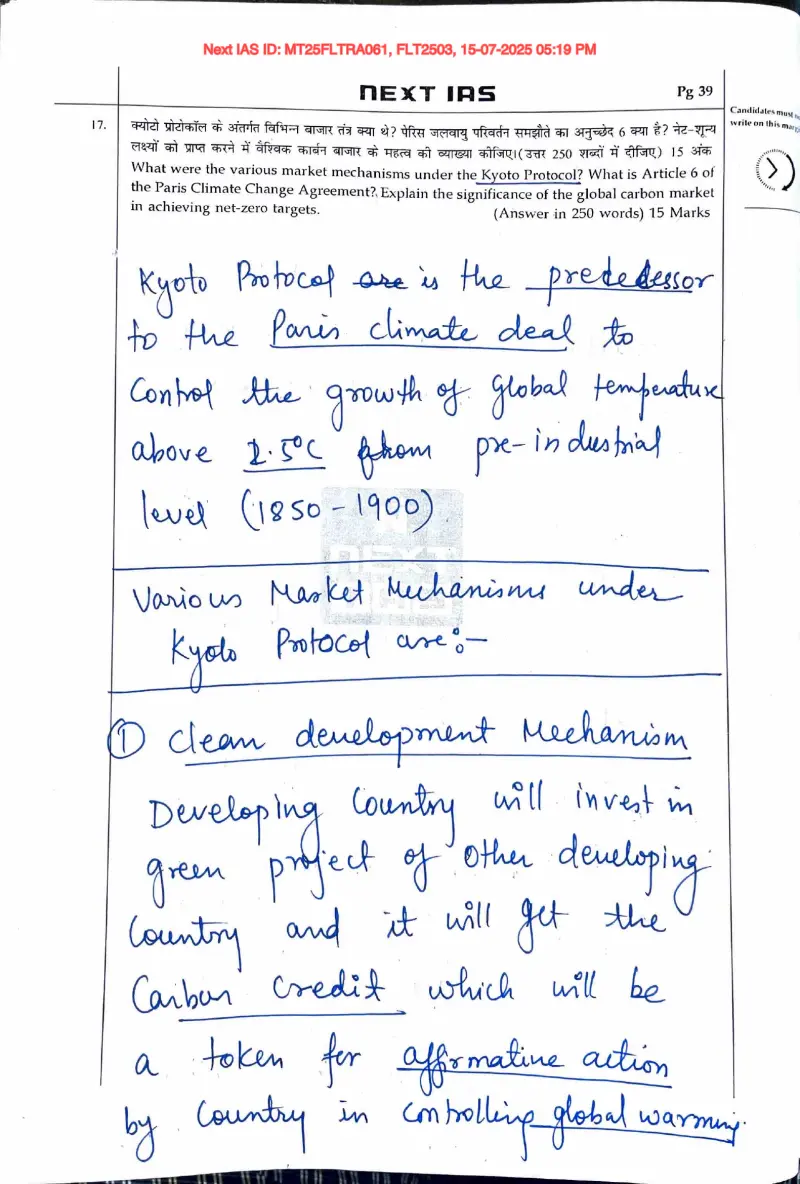 Next IAS ID: MT25FLTRA061, FLT2503, 15-07-2025 05:19 PM
NEXT IAS
Pg 39
Candidates must
write on this
17. क्योटो प्रोटोकॉल के अंतर्गत विभिन्न बाजार तंत्र क्या थे? पेरिस जलवायु परिवर्तन समझौते का अनुच्छेद 6 क्या है? नेट-शून्य
लक्ष्यों को प्राप्त करने में वैश्विक कार्बन बाजार के महत्व की व्याख्या कीजिए। (उत्तर 250 शब्दों में दीजिए) 15 अंक
What were the various market mechanisms under the Kyoto Protocol? What is Article 6 of
the Paris Climate Change Agreement? Explain the significance of the global carbon market
in achieving net-zero targets. (Answer in 250 words) 15 Marks
Kyoto Protocol is the
to the Paris climate deal to
Control the growth of global temperature
above from pre-industrial
level (1850-1900)
Various Market Mechanisms under
Kyoto Protocol are:-
① Clean development Mechanism
Developing Country will invest in
green project of other developing
Country and it will get the
Carbon Credit which will be
a token for affirmative action
by Country in controlling global warming.